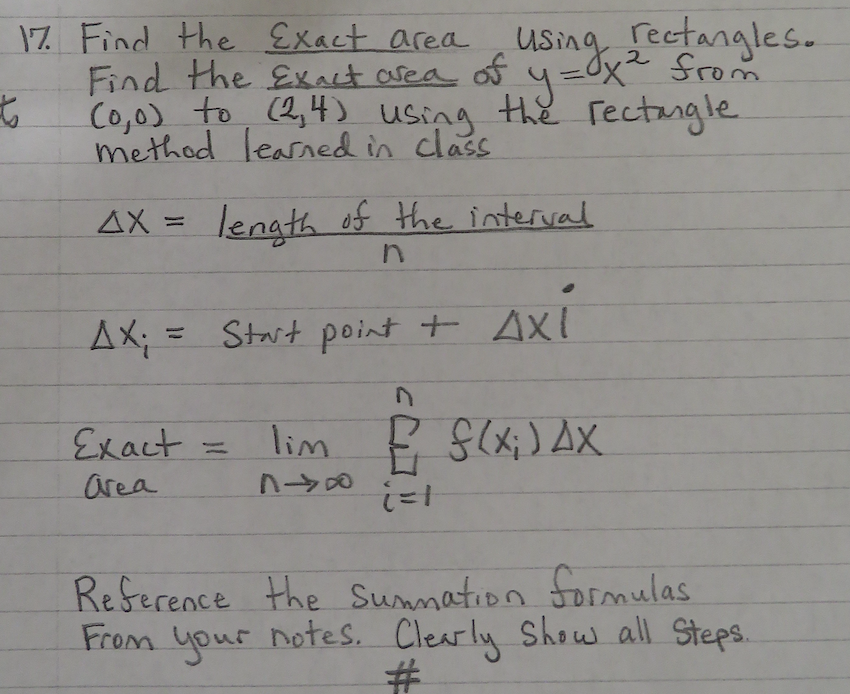 17. Find the Exact area using rectangles.
Find the Exact area of y = x² from
(0,0) to (2,4) using the rectangle
method learned in class
Δx = length of the interval
n
Δxᵢ = Start point + Δxi
n
Exact = lim Σ f(xᵢ) Δx
area n→∞ i=1
Reference the summation formulas
From your notes. Clearly Show all Steps.
#